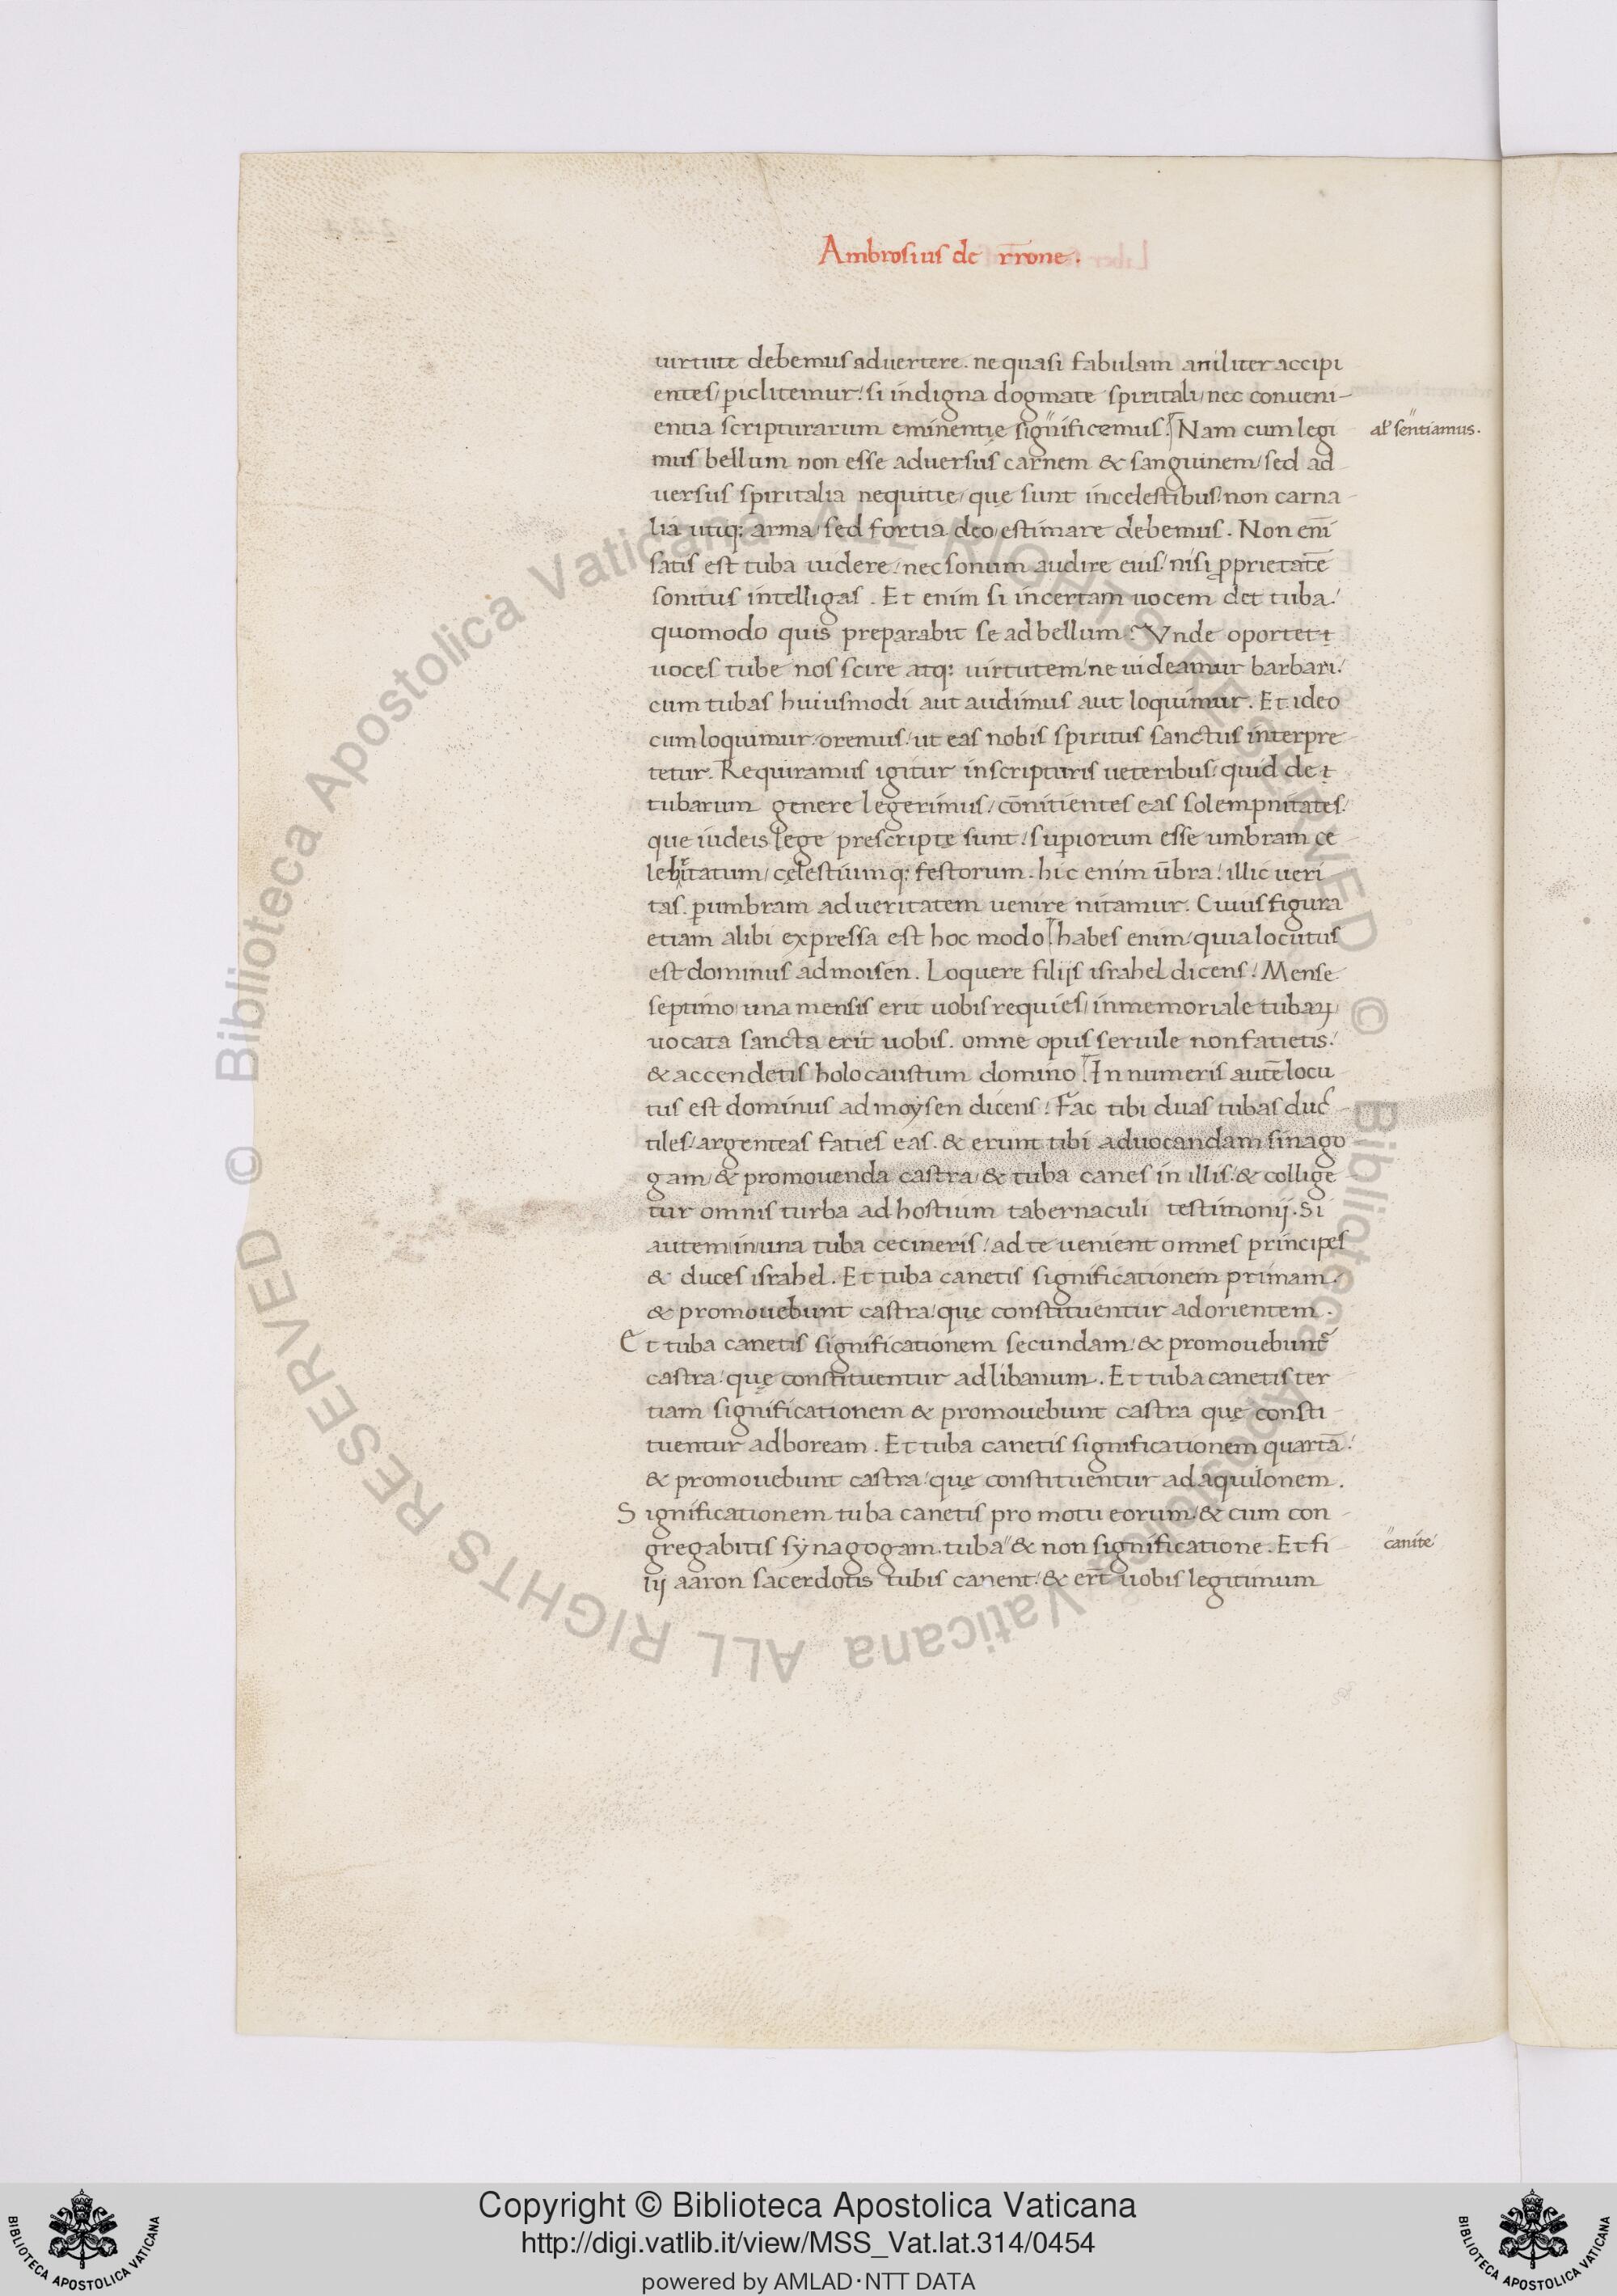 Ambrosius de rr̄one.
uirtute debemus aduertere. ne quasi fabulam aniliter accipi
entes/ ꝑiclitemur/ si indigna dogmate spiritali/ nec conueni-
entia scripturarum eminentię significemus. Nam cum legi
al' sentiamus.
mus bellum non esse aduersus carnem & sanguinem/ sed ad
uersus spiritalia nequitie/ quę sunt in celestibus/ non carna-
lia utiq: arma/ sed fortia deo/ estimare debemus. Non eni̅
satis est tuba uidere/ nec sonum audire eius/ nisi ꝓprietate̅
sonitus intelligas. Et enim si incertam uocem det tuba/
quomodo quis preparabit se ad bellum? Vnde oportet
uoces tube nos scire atq: uirtutem/ ne uideamur barbari/
cum tubas huiusmodi aut audimus aut loquimur. Et ideo
cum loquimur/ oremus/ ut eas nobis spiritus sanctus interpre-
tetur. Requiramus igitur in scripturis ueteribus/ quid de
tubarum genere legerimus/ co̅nitientes eas solempnitates/
que iudeis lege prescriptę sunt/ suꝑiorum esse umbram ce-
lebritatum/ cęlestiumq: festorum. hic enim u̅bra/ illic ueri
tas. ꝑ umbram ad ueritatem uenire nitamur. Cuius figura
etiam alibi expressa est hoc modo habes enim/ quia locutus
est dominus ad moisen. Loquere filijs israhel dicens/ Mense
septimo una mensis erit uobis requies/ in memoriale tubaꝝ
uocata sancta erit uobis. omne opus seruile non fatietis/
& accendetis holocaustum domino. In numeris aute̅ locu
tus est dominus ad moysen dicens/ Fac tibi duas tubas duc-
tiles/ argenteas faties eas. & erunt tibi ad uocandam sinago
gam/ & promouenda castra/ & tuba canes in illis/ & collige-
tur omnis turba ad hostium tabernaculi testimonij. Si
autem in una tuba cecineris/ ad te uenient omnes principes
& duces israhel. Et tuba canetis significationem primam/
& promouebunt castra/ que constituentur ad orientem.
Et tuba canetis significationem secundam/ & promouebunt
castra/ quę constituentur ad libanum. Et tuba canetis ter
tiam significationem & promouebunt castra quę consti
tuentur ad boream. Et tuba canetis significationem quarta̅/
& promouebunt castra/ quę constituentur ad aquilonem.
Significationem tuba canetis pro motu eorum/ & cum con
gregabitis synagogam. tuba" & non significatione. Et fi
"canite
lij aaron sacerdotis tubis canent/ & er̅t uobis legitimum
© Biblioteca Apostolica Vaticana ALL RIGHTS RESERVED © Biblioteca Apostolica Vaticana ALL RIGHTS RESERVED
Copyright © Biblioteca Apostolica Vaticana
http://digi.vatlib.it/view/MSS_Vat.lat.314/0454
powered by AMLAD·NTT DATA
BIBLIOTECA APOSTOLICA VATICANA
BIBLIOTECA APOSTOLICA VATICANA